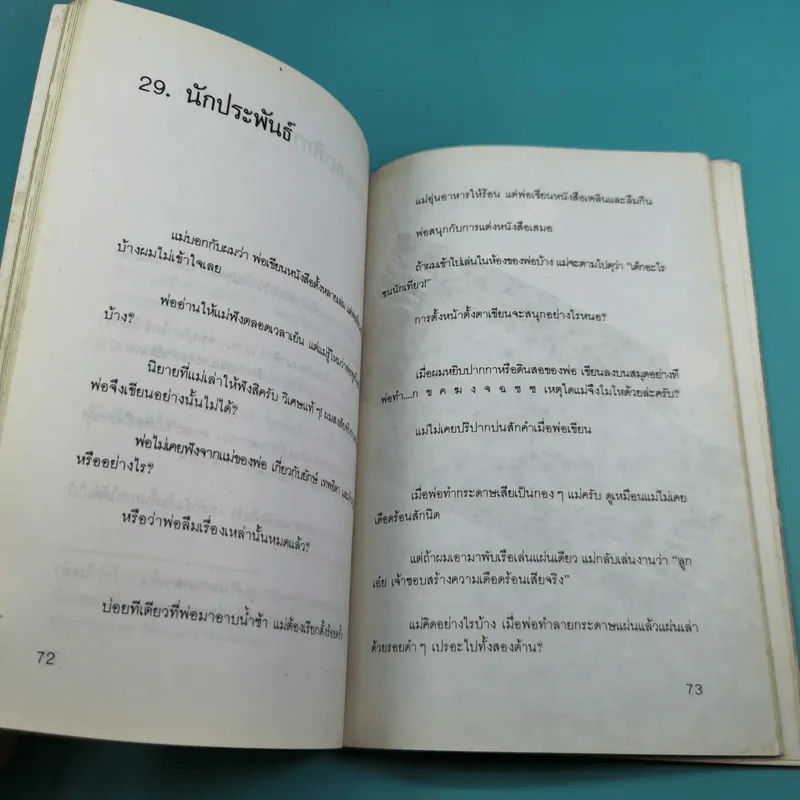 29. นักประพันธ์
แม่บอกกับผมว่า พ่อเขียนหนังสือตั้งหลายเล่ม
บ้างผมไม่เข้าใจเลย
พ่ออ่านให้แม่ฟังตลอดเวลาเย็น แต่แม่รู้ไหมว่า
บ้าง?
นิยายที่แม่เล่าให้ฟังสิครับ วิเศษแท้ ๆ!
พ่อจึงเขียนอย่างนั้นไม่ได้?
พ่อไม่เคยฟังจากแม่ของพ่อ เกี่ยวกับยักษ์ เทพธิดา
หรืออย่างไร?
หรือว่าพ่อลืมเรื่องเหล่านั้นหมดแล้ว?
บ่อยทีเดียวที่พ่อมาอาบน้ำช้า แม่ต้องเรียกตั้งร้อยครั้ง
72
แม่อุ่นอาหารให้ร้อน แต่พ่อเขียนหนังสือเพลินและลืมกิน
พ่อสนุกกับการแต่งหนังสือเสมอ
ถ้าผมเข้าไปเล่นในห้องของพ่อบ้าง แม่จะตามไปดุว่า "เด็กอะไร
ซนนักเทียว!"
การตั้งหน้าตั้งตาเขียนจะสนุกอย่างไรหนอ?
เมื่อผมหยิบปากกาหรือดินสอของพ่อ เขียนลงบนสมุดอย่างที่
พ่อทำ....ก ข ค ฆ ง จ ฉ ช ซ เหตุใดแม่จึงโมโหด้วยล่ะครับ?
แม่ไม่เคยปริปากบ่นสักคำเมื่อพ่อเขียน
เมื่อพ่อทำกระดาษเสียเป็นกอง ๆ แม่ครับ ดูเหมือนแม่ไม่เคย
เดือดร้อนสักนิด
แต่ถ้าผมเอามาพับเรือเล่นแผ่นเดียว แม่กลับเล่นงานว่า "ลูก
เอ๋ย เจ้าชอบสร้างความเดือดร้อนเสียจริง"
แม่คิดอย่างไรบ้าง เมื่อพ่อทำลายกระดาษแผ่นแล้วแผ่นเล่า
ด้วยรอยดำ ๆ เปรอะไปทั้งสองด้าน?
73